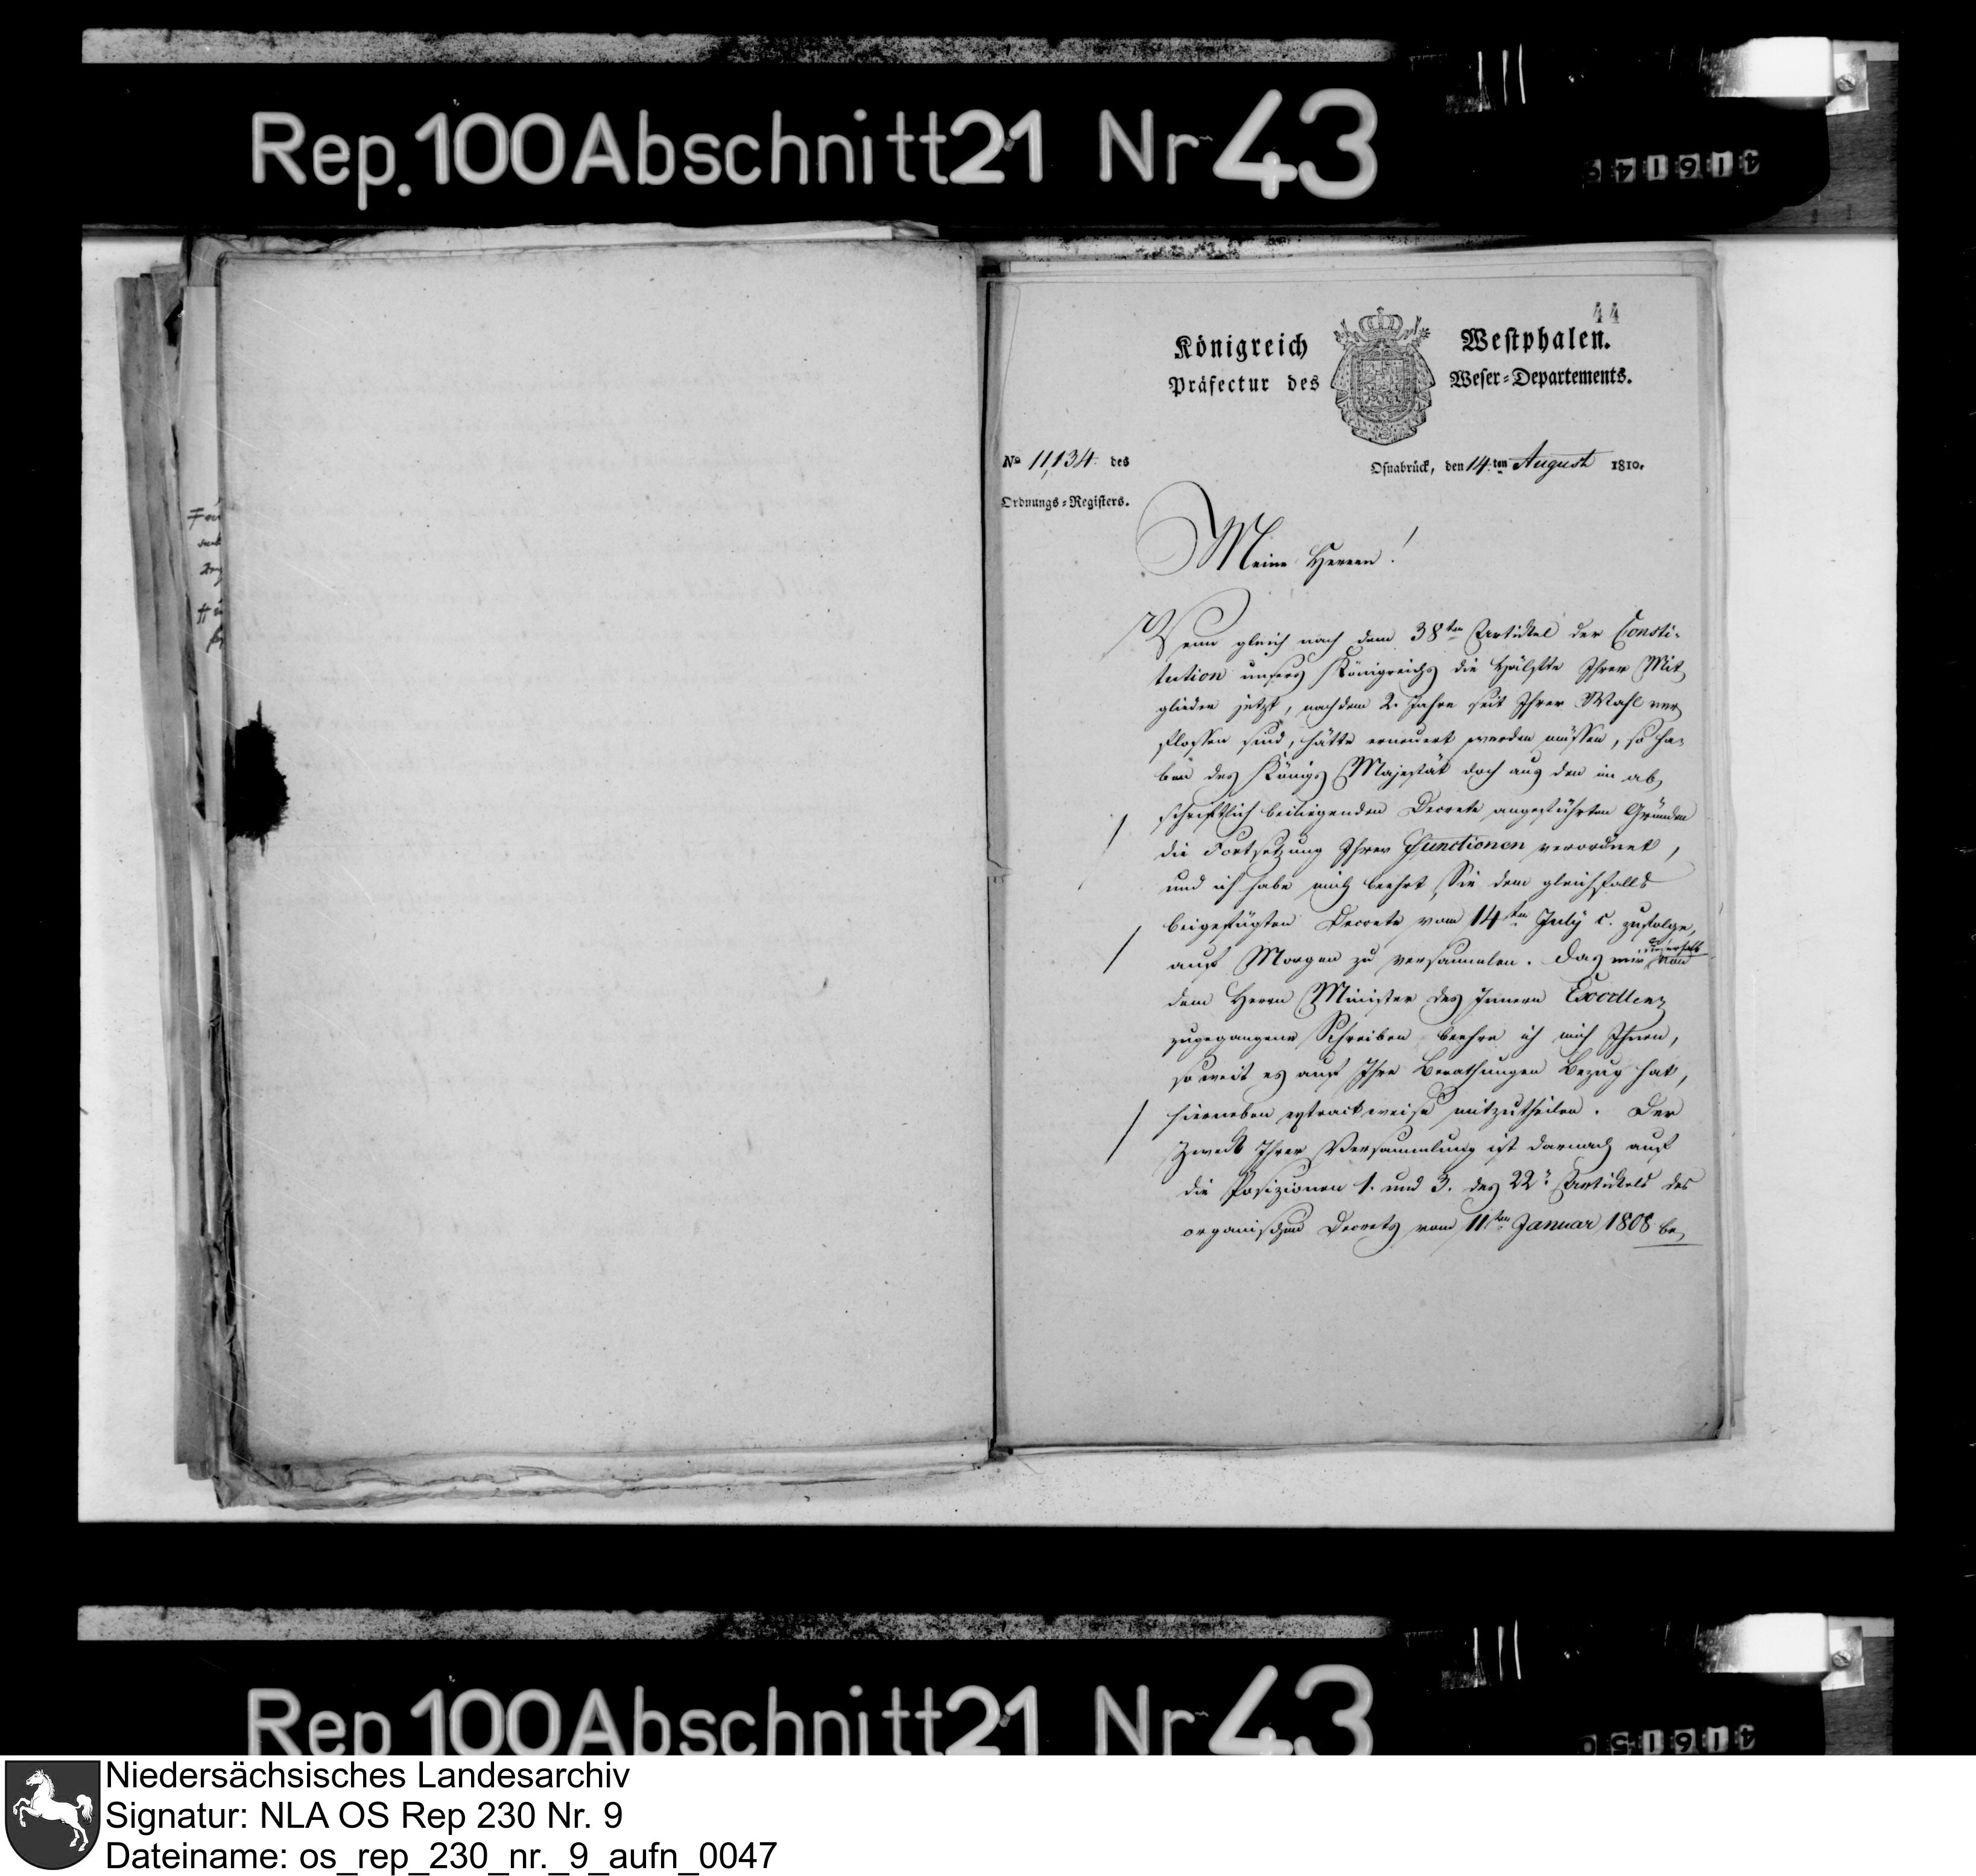 Rep. 100 Abschnitt 21 Nr 43
41614
44
Königreich Westphalen.
Präfectur des Weser-Departements.
No 11,134. des
Ordnungs-Registers.
Osnabrück, den 14ten August 1810.
Meine Herren!
Wenn gleich nach dem 38ten Artickel der Consti-
tution unsers Königreichs die Hälfte Ihrer Mit
glieder jetzt, nachdem 2. Jahre seit Ihrer Wahl ver
flossen sind, hätte erneuert werden müssen, so ha-
ben des Königs Majestät doch aus den im ab
schriftlich beiliegenden Decrete angeführten Gründen
die Fortsetzung Ihrer Functionen verordnet,
und ich habe mich beehrt, Sie dem gleichfalls
beigefügten Decrete vom 14ten July c. zufolge,
auf Morgen zu versammlen. Das mir dieserhalb von
dem Herrn Minister des Innern Excellenz
zugegangene Schreiben beehre ich mich Ihnen,
so weit es auf Ihre Berathungen Bezug hat,
hierneben extractweise mitzutheilen. Der
Zweck Ihrer Versammlung ist darnach auf
die Posizionen 1. und 3. des 22. Artickels des
organischen Decrets vom 11ten Januar 1808 be
Rep 100 Abschnitt 21 Nr 43
Niedersächsisches Landesarchiv
Signatur: NLA OS Rep 230 Nr. 9
Dateiname: os_rep_230_nr._9_aufn_0047